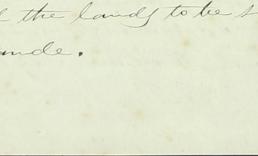 the lands to be s
ande.